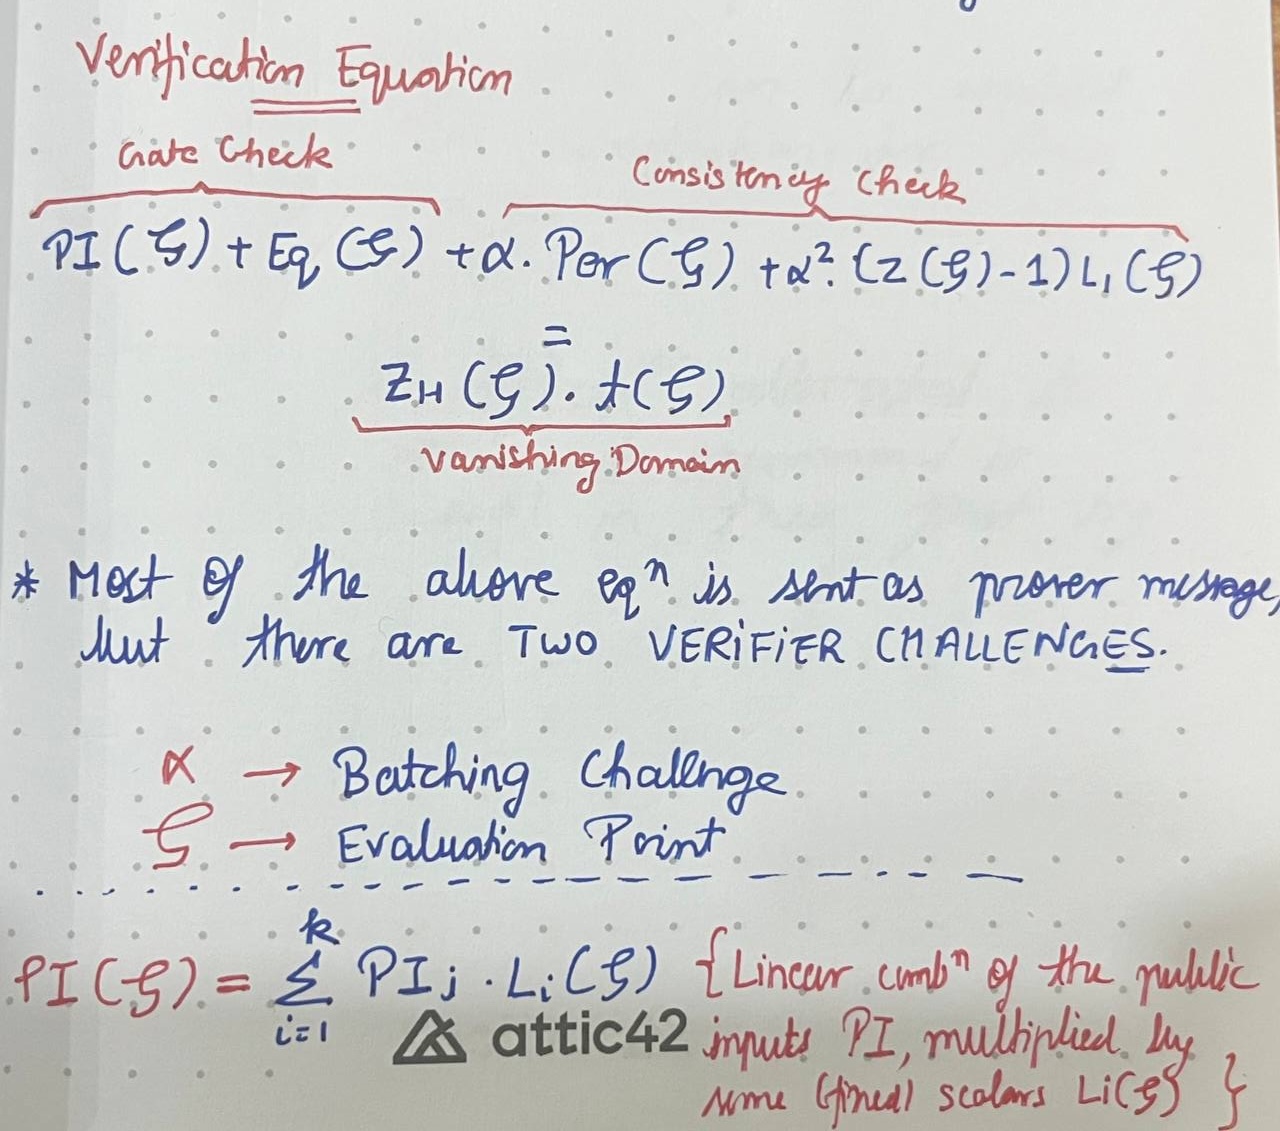 Verification Equation
Gate Check
Consistency Check
PI(ζ) + Eq(ζ) + α. Per(ζ) + α². (z(ζ)-1)L₁(ζ)
=
Z_H(ζ). t(ζ)
Vanishing Domain
* Most of the above eqⁿ is sent as prover message,
but there are TWO VERIFIER CHALLENGES.
α → Batching Challenge
ζ → Evaluation Point
k
PI(ζ) = Σ PIj · Li(ζ) {Linear combⁿ of the public
i=1
attic42
inputs PI, multiplied by
some (fixed) scalars Li(ζ) }